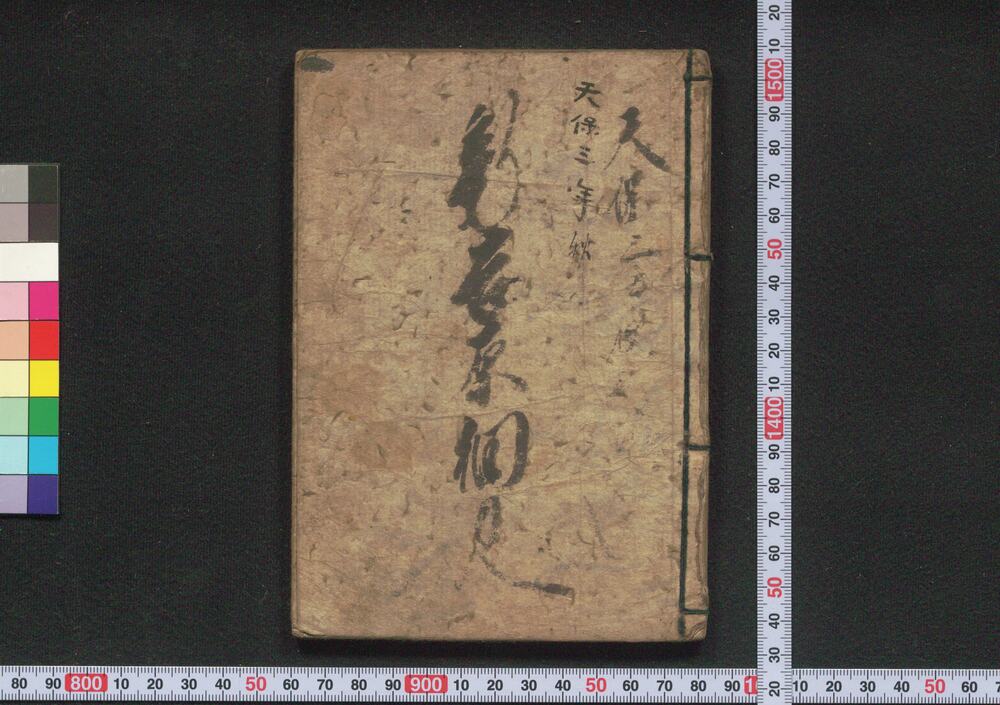 天保三
天保三年秋
新吉原細見
20
10
1500
90
80
70
60
50
40
30
20
10
1400
90
80
70
60
50
40
30
20
80 90 800 10 20 30 40 50 60 70 80 90 900 10 20 30 40 50 60 70 80 90 1 10 20 30 40 50 60 7